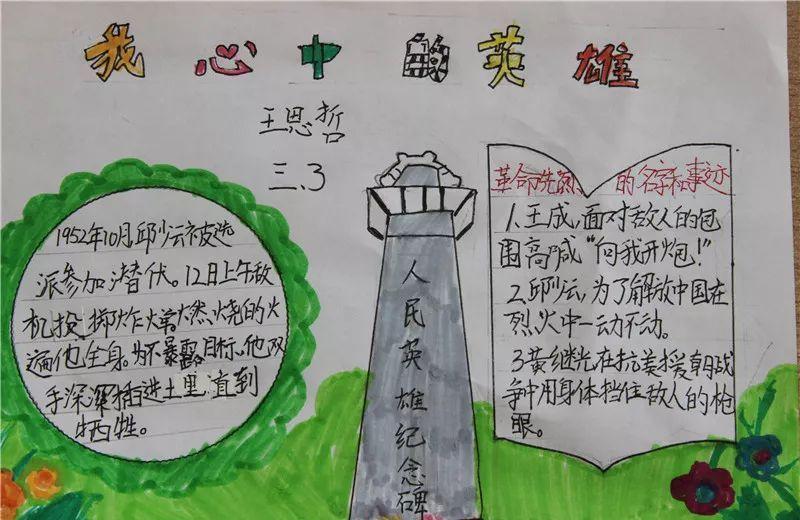 我心中的英雄
王思哲
三.3
1952年10月邱少云被选
派参加潜伏。12日上午敌
机投掷炸弹。燃烧的火
遍他全身。为不暴露目标,他双
手深深插进土里直到
牺牲。
人民英雄纪念碑
革命先烈的名字和事迹
1.王成,面对敌人的包
围高喊“向我开炮!”
2.邱少云,为了解放中国在
烈火中一动不动。
3.黄继光在抗美援朝战
争中用身体挡住敌人的枪
眼。